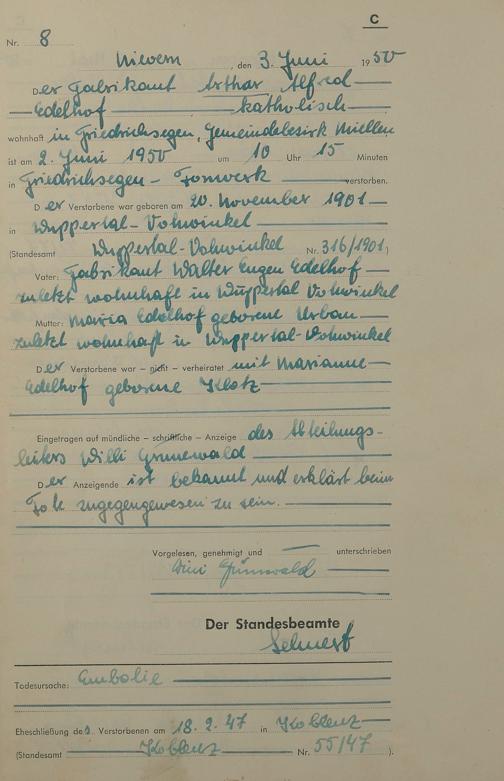 C
Nr. 8
Nievern, den 3. Juni 1950
Der Fabrikant Arthur Alfred
Edelhof katholisch
wohnhaft in Friedrichsegen, Gemeindebezirk Miellen
ist am 2. Juni 1950 um 10 Uhr 15 Minuten
in Friedrichsegen - Tonwerk verstorben.
Der Verstorbene war geboren am 20. November 1901
in Wuppertal-Vohwinkel
(Standesamt Wuppertal-Vohwinkel Nr. 316/1901)
Vater: Fabrikant Walter Eugen Edelhof
zuletzt wohnhaft in Wuppertal Vohwinkel
Mutter: Maria Edelhof geborene Urban
zuletzt wohnhaft in Wuppertal-Vohwinkel
Der Verstorbene war – nicht – verheiratet mit Marianne
Edelhof geborene Klotz
Eingetragen auf mündliche – schriftliche – Anzeige des Abteilungs-
leiters Willi Grunewald
Der Anzeigende ist bekannt und erklärt beim
Tode zugegengewesen zu sein.
Vorgelesen, genehmigt und unterschrieben
Grünwald
Der Standesbeamte
Todesursache: Embolie
Eheschließung des Verstorbenen am 18.2.47 in Koblenz
(Standesamt Koblenz Nr. 55/47).